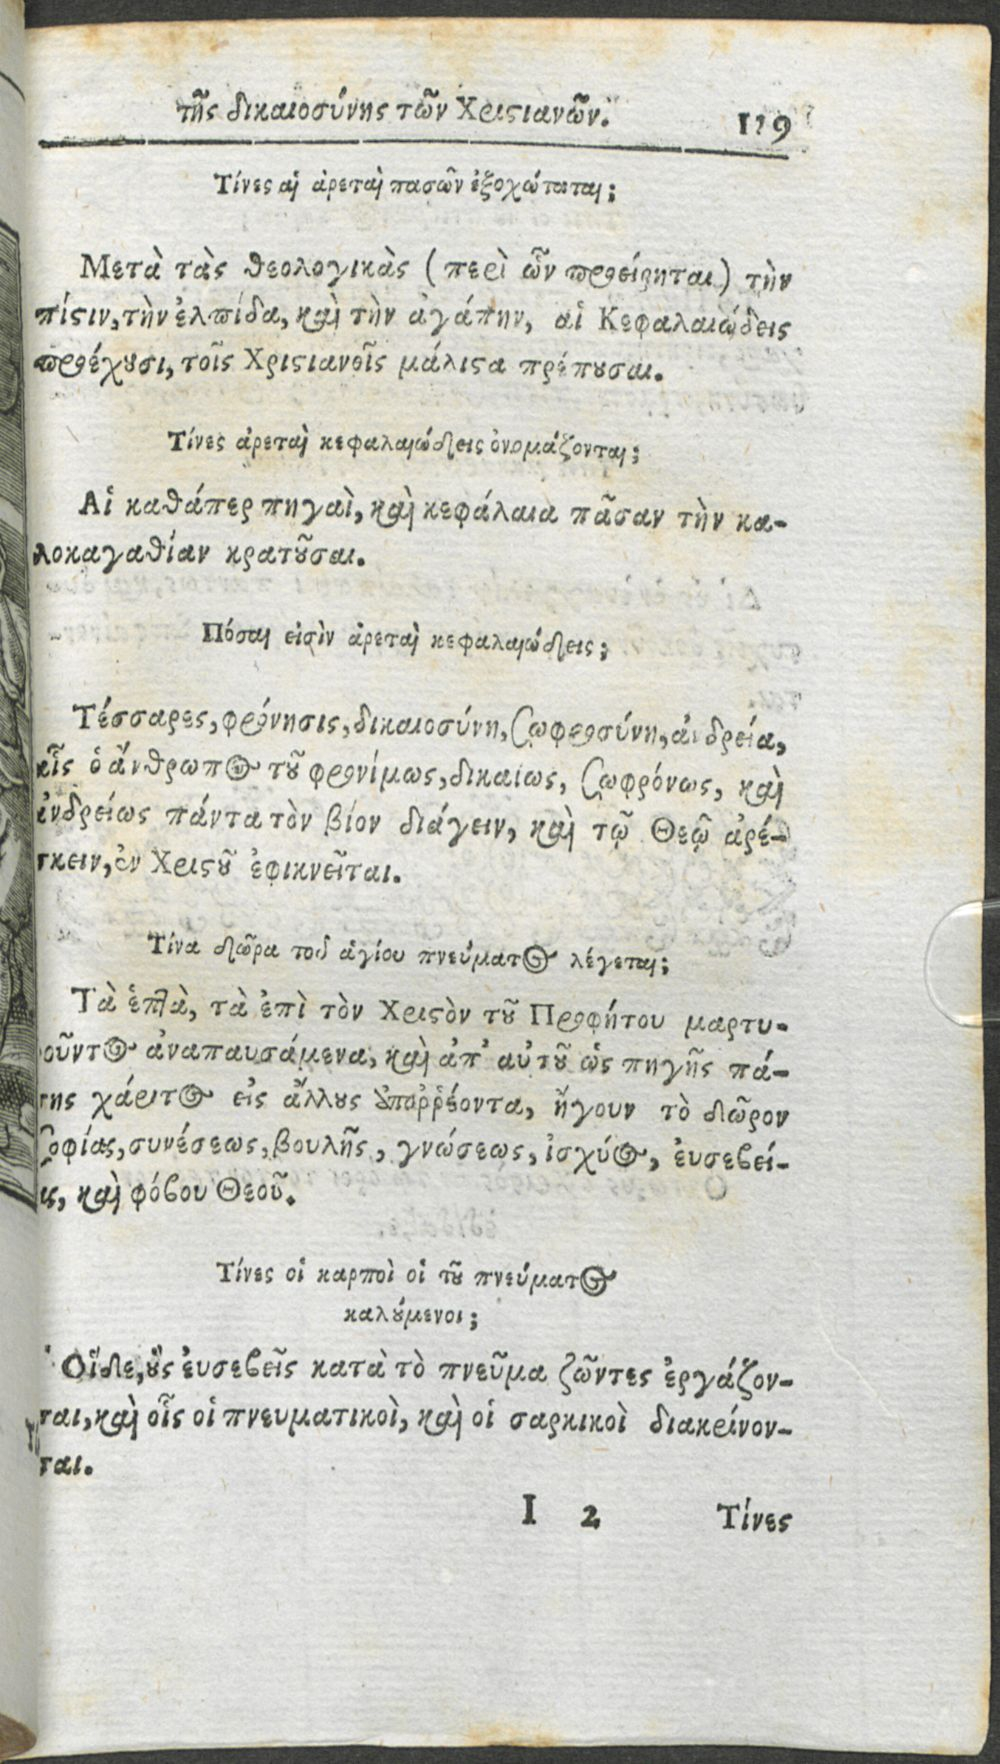 τῆς δικαιοσύνης τῶν Χριςιανῶν. 119
Τίνες αἱ ἀρεταὶ πασῶν ἐξοχώταται;
Μετὰ τὰς θεολογικὰς (περὶ ὧν προείρηται) τὴν
πίςιν, τὴν ἐλπίδα, καὶ τὴν ἀγάπην, αἱ Κεφαλαιώδεις
προέχȣσι, τοῖς Χριςιανοῖς μάλιςα πρέπȣσαι.
Τίνες ἀρεταὶ κεφαλαιώδεις ὀνομάζονται;
Αἱ καθάπερ πηγαὶ, καὶ κεφάλαια πᾶσαν τὴν κα-
λοκαγαθίαν κρατȣ͂σαι.
Πόσαι εἰσὶν ἀρεταὶ κεφαλαιώδεις;
Τέσσαρες, φρόνησις, δικαιοσύνη, σωφροσύνη, ἀνδρεία,
αἷς ὁ ἄνθρωπος τȣ͂ φρονίμως, δικαίως, σωφρόνως, καὶ
ἀνδρείως πάντα τὸν βίον διάγειν, καὶ τῷ Θεῷ ἀρέ-
σκειν, ἐν Χριςȣ͂ ἐφικνεῖται.
Τίνα δῶρα τοῦ ἁγίου πνεύματος λέγεται;
Τὰ ἑπτὰ, τὰ ἐπὶ τὸν Χριςὸν τȣ͂ Προφήτου μαρτυ-
ροῦντος ἀναπαυσάμενα, καὶ ἀπ' αὐτȣ͂ ὡς πηγῆς πά-
σης χάριτος εἰς ἄλλȣς ὑποῤῥέοντα, ἤγουν τὸ δῶρον
σοφίας, συνέσεως, βουλῆς, γνώσεως, ἰσχύος, ἐυσεβεί-
ας, καὶ φόβου Θεοῦ.
Τίνες οἱ καρποὶ οἱ τȣ͂ πνεύματος
καλȣ́μενοι;
Οἵδε, ȣ̔̀ς ἐυσεβεῖς κατὰ τὸ πνεῦμα ζῶντες ἐργάζον-
ται, καὶ οἷς οἱ πνευματικοὶ, καὶ οἱ σαρκικοὶ διακρίνον-
ται.
I 2 Τίνες